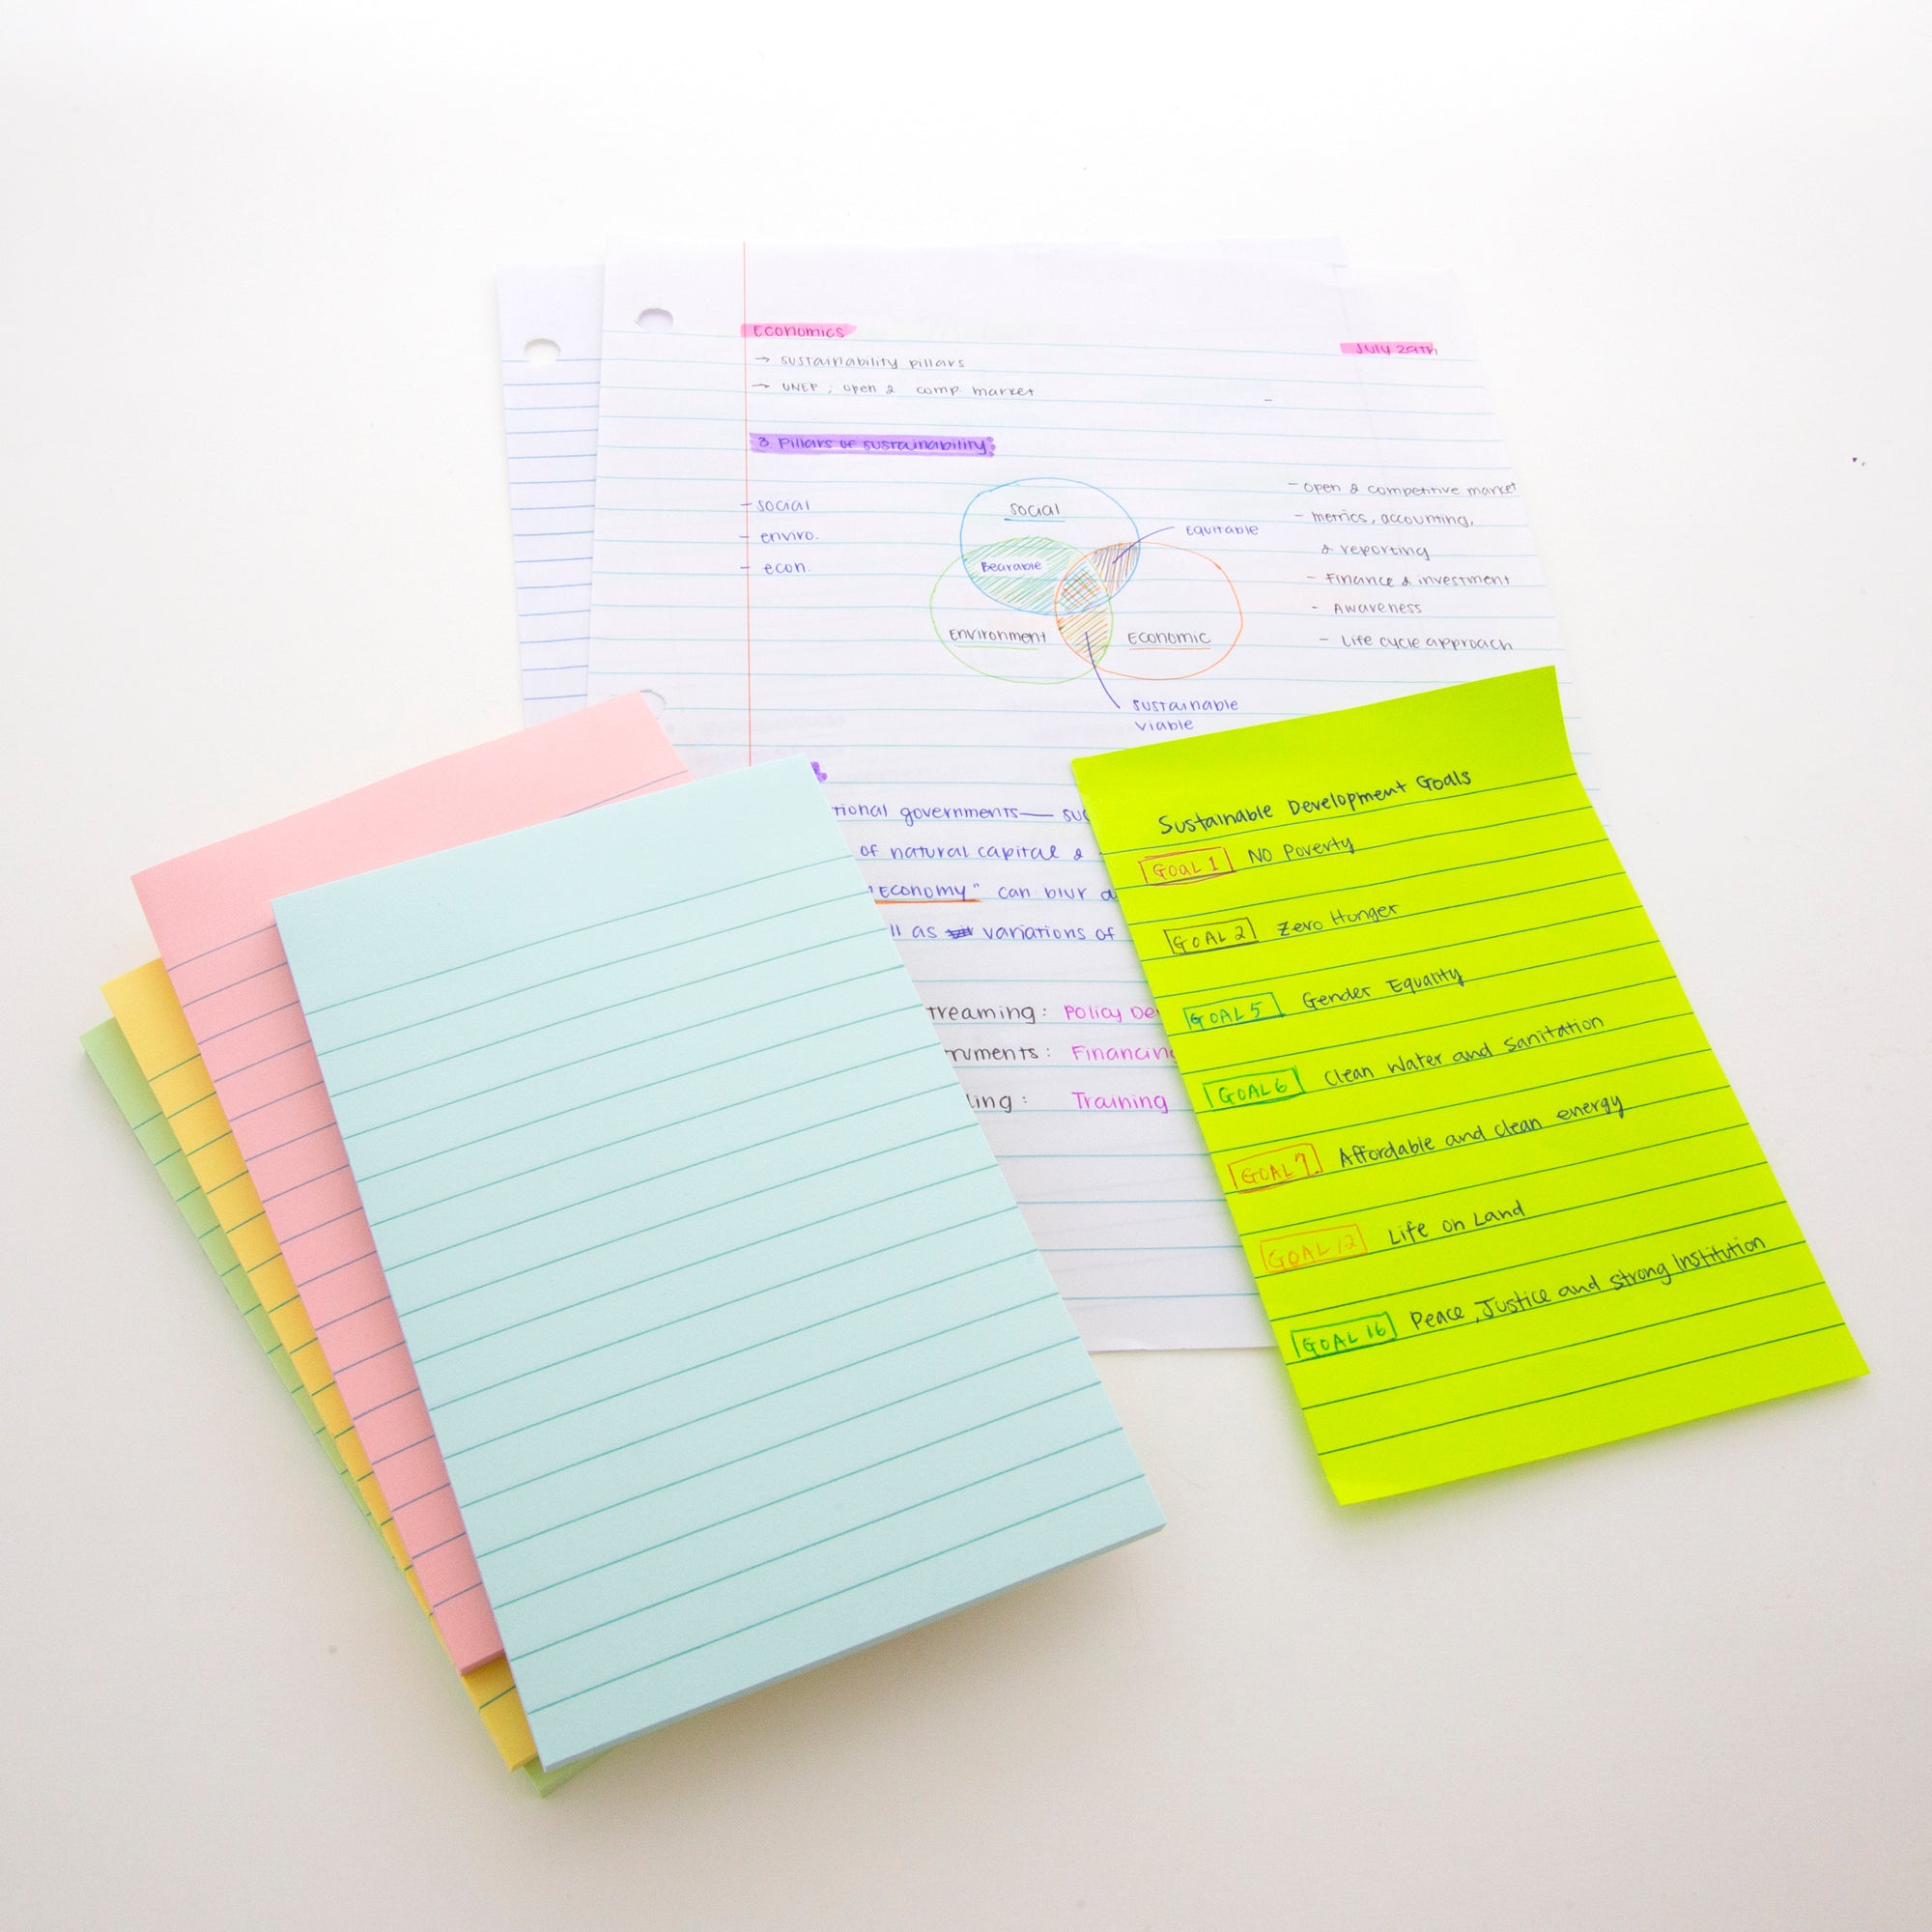 Economics
July 29th
→ sustainability pillars
→ UNEP ; open & comp market
3 Pillars of sustainability
- social
- enviro.
- econ.
social
Bearable
Equitable
Environment
Economic
Sustainable
viable
- open & competitive market
- metrics, accounting,
& reporting
- Finance & investment
- Awareness
- Life cycle approach
tional governments—
of natural capital &
"Economy" can blur
as variations of
treaming: Policy De
ruments: Financing
ling: Training
Sustainable Development Goals
GOAL 1 No Poverty
GOAL 2 Zero Hunger
GOAL 5 Gender Equality
GOAL 6 Clean Water and sanitation
GOAL 7 Affordable and clean energy
GOAL 12 Life on Land
GOAL 16 Peace, Justice and strong Institution